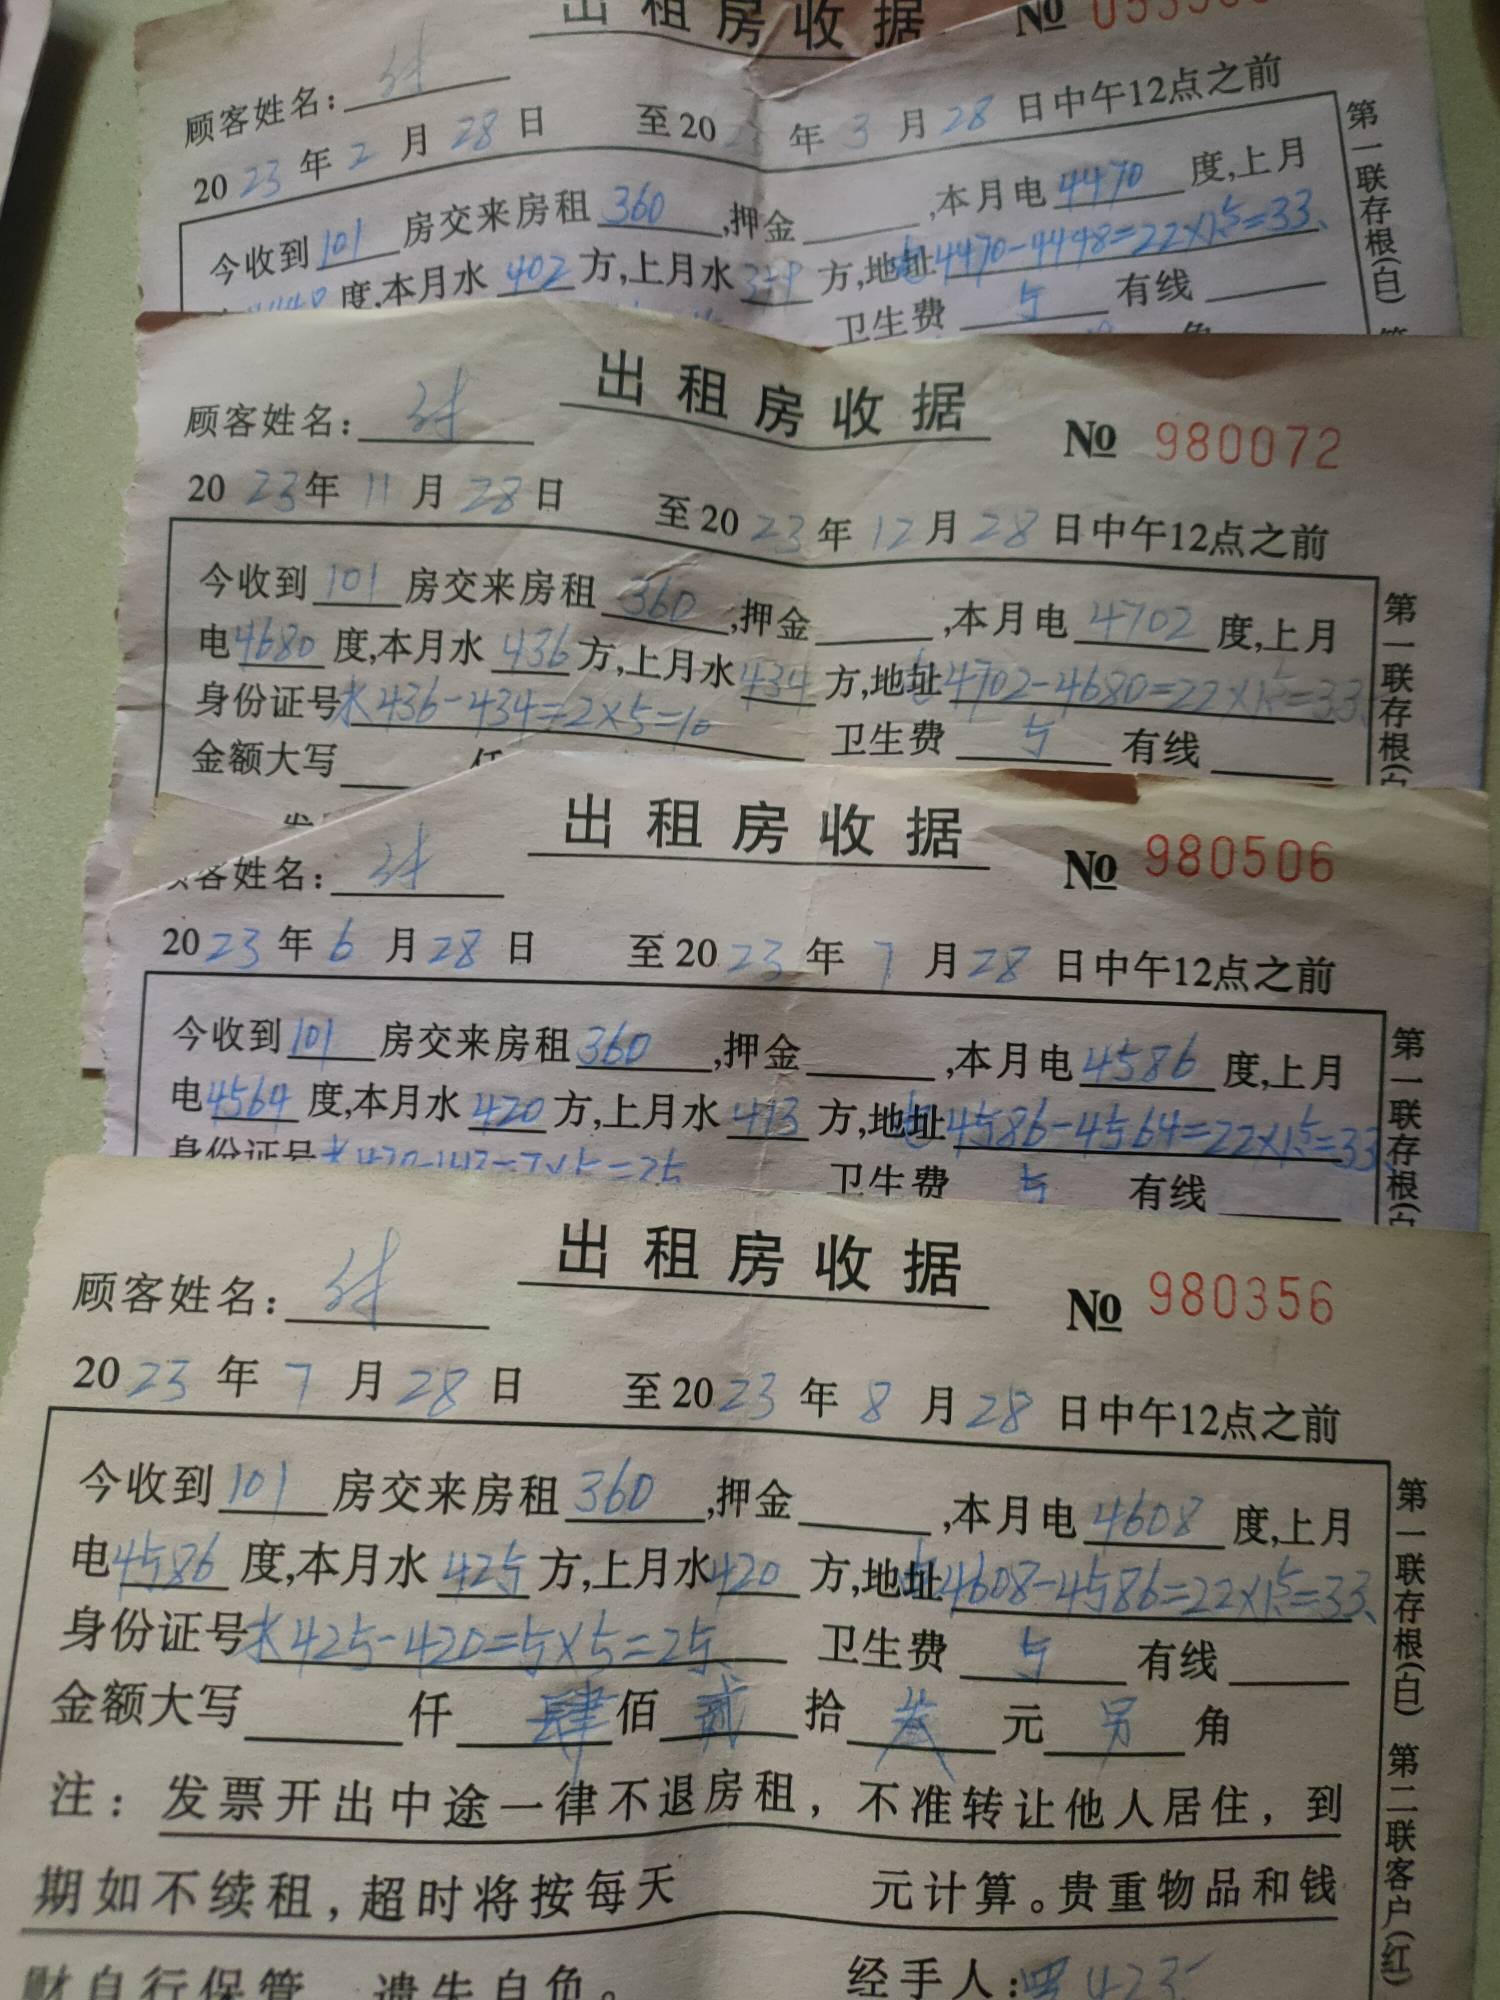 出租房收据 №
顾客姓名:
2023年2月28日 至20 年3月28日中午12点之前
今收到101房交来房租360,押金 ,本月电4470度,上月
度,本月水402方,上月水 方,地址电4470-4448=22×1.5=33、
卫生费5 有线
第一联存根(白)
出租房收据 №980072
顾客姓名:
2023年11月28日 至2023年12月28日中午12点之前
今收到101房交来房租360,押金 ,本月电4702度,上月
电4680度,本月水436方,上月水434方,地址电4702-4680=22×1.5=33、
身份证号水436-434=2×5=10 卫生费5 有线
金额大写 仟
第一联存根(白
出租房收据 №980506
客姓名:
2023年6月28日 至2023年7月28日中午12点之前
今收到101房交来房租360,押金 ,本月电4586度,上月
电4564度,本月水420方,上月水413方,地址电4586-4564=22×1.5=33、
身份证号水 卫生费5 有线
第一联存根(白
出租房收据 №980356
顾客姓名:
2023年7月28日 至2023年8月28日中午12点之前
今收到101房交来房租360,押金 ,本月电4608度,上月
电4586度,本月水425方,上月水420方,地址电4608-4586=22×1.5=33、
身份证号水425-420=5×5=25、 卫生费5 有线
金额大写 仟肆佰贰拾叁元另角
注:发票开出中途一律不退房租,不准转让他人居住,到
期如不续租,超时将按每天 元计算。贵重物品和钱
财自行保管,遗失自负。 经手人: 423
第一联存根(白) 第二联客户(红)